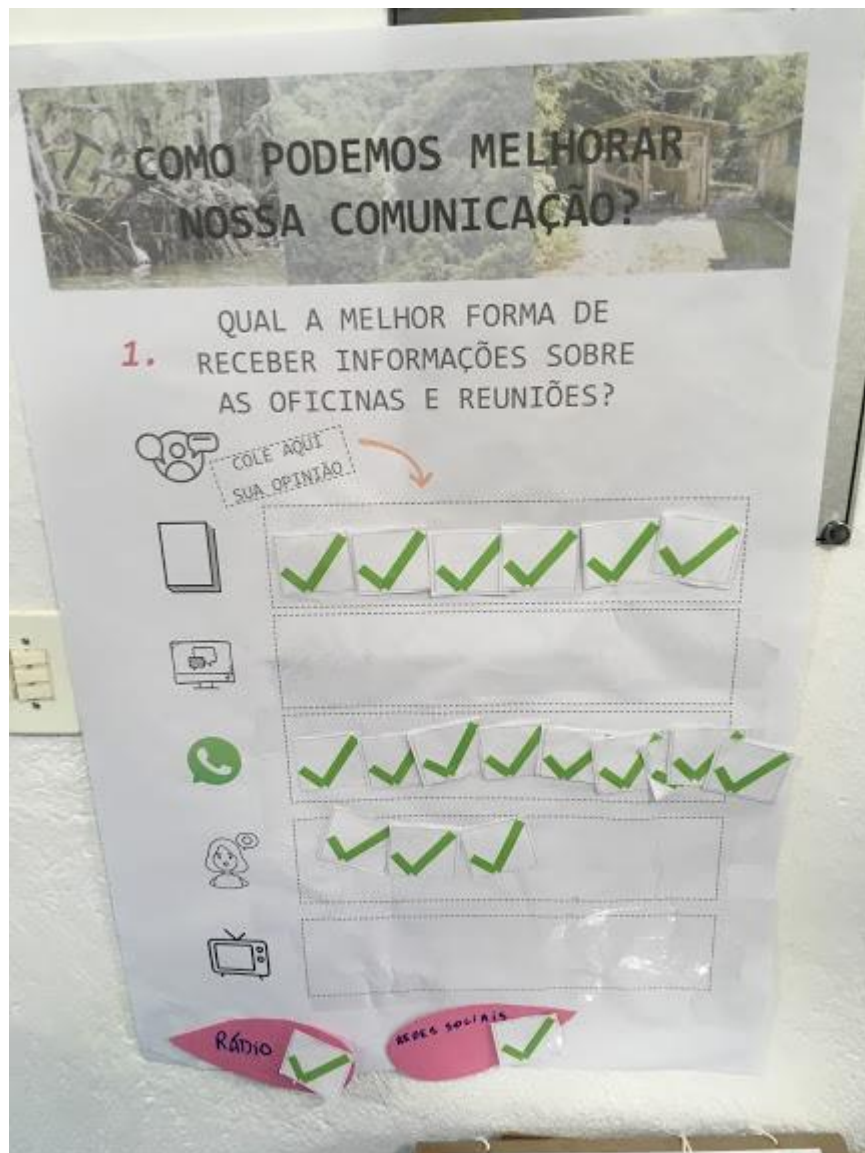 COMO PODEMOS MELHORAR
NOSSA COMUNICAÇÃO?
1.
QUAL A MELHOR FORMA DE
RECEBER INFORMAÇÕES SOBRE
AS OFICINAS E REUNIÕES?
COLE AQUI
SUA OPINIÃO
RÁDIO
REDES SOCIAIS